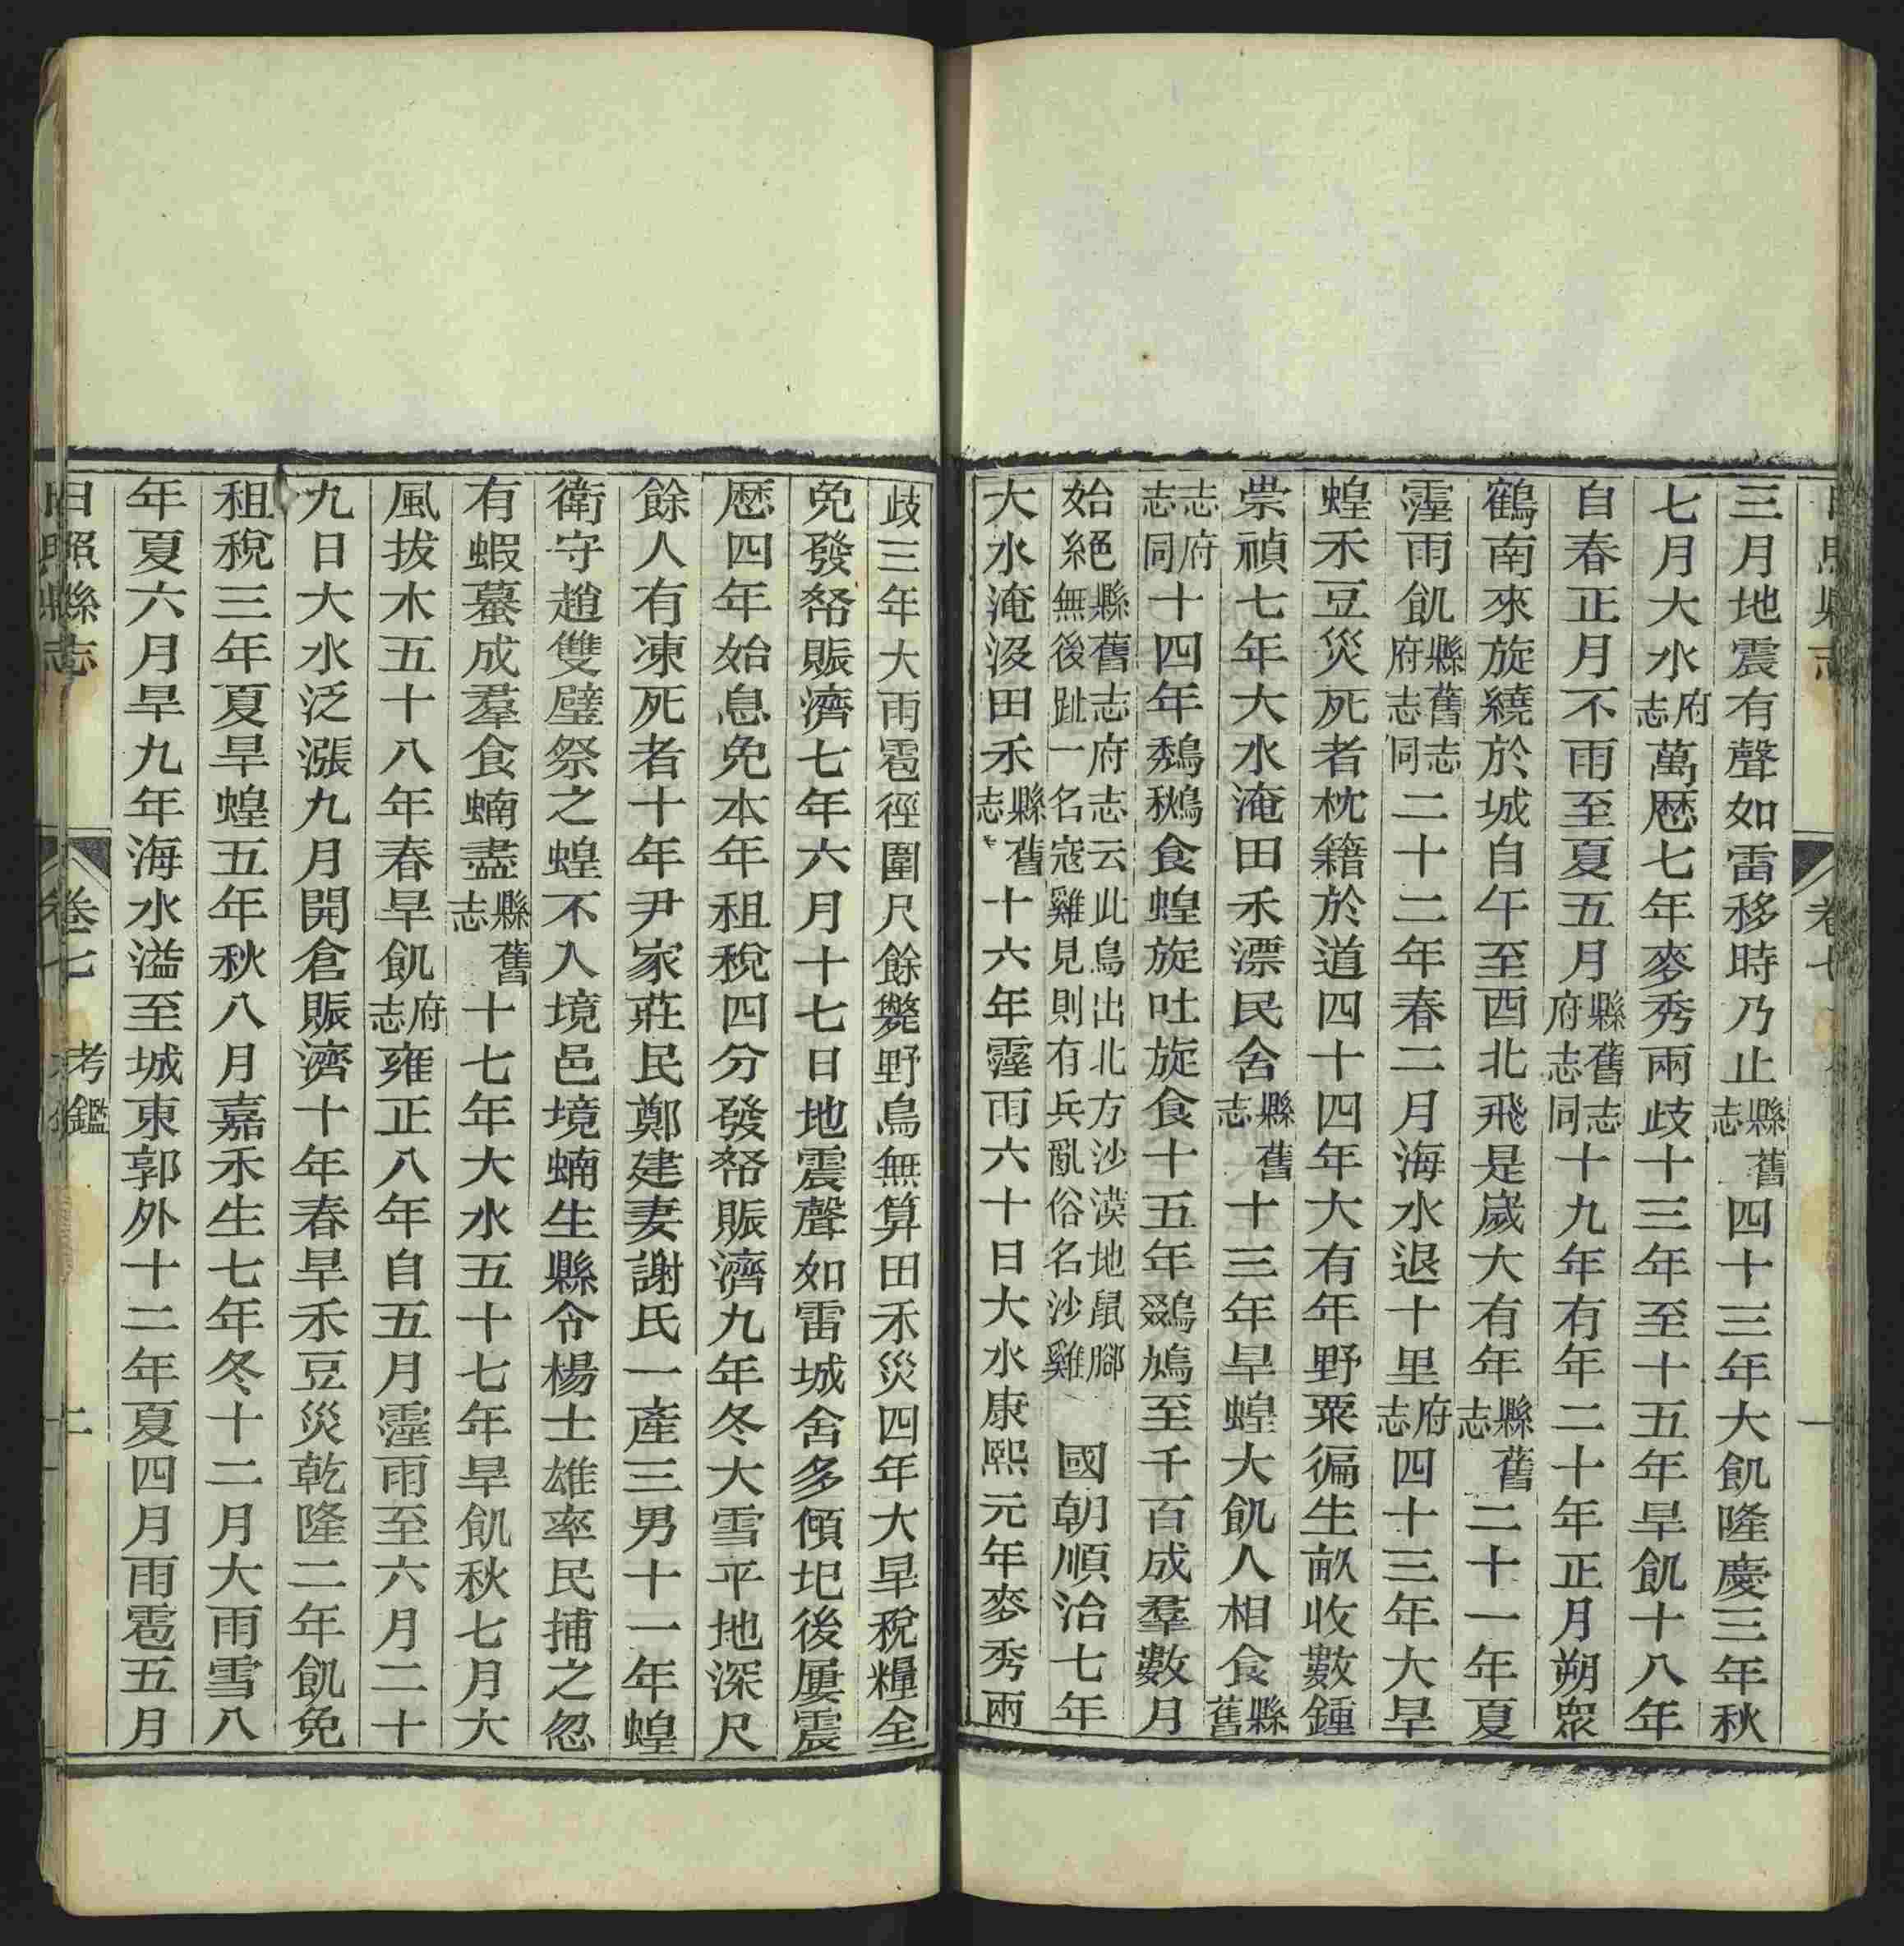 三月地震有聲如雷移時乃止縣舊志四十三年大飢隆慶三年秋
七月大水府志萬厯七年麥秀兩歧十三年至十五年旱飢十八年
自春正月不雨至夏五月縣舊志府志同十九年有年二十年正月朔眾
鶴南來旋繞於城自午至酉北飛是嵗大有年縣舊志二十一年夏
霪雨飢縣舊志府志同二十二年春二月海水退十里府志四十三年大旱
蝗禾豆災死者枕籍於道四十四年大有年野粟徧生畝收數鍾
崇禎七年大水淹田禾漂民舍縣舊志十三年旱蝗大飢人相食縣舊
志府志同十四年鵚鶖食蝗旋吐旋食十五年鵽鳩至千百成羣數月
始絕縣舊志府志云此鳥出北方沙漠地鼠腳無後趾一名寇雞見則有兵亂俗名沙雞 國朝順治七年
大水淹汲田禾縣舊志十六年霪雨六十日大水康熙元年麥秀兩
歧三年大雨雹徑圍尺餘斃野鳥無算田禾災四年大旱稅糧全
免發帑賑濟七年六月十七日地震聲如雷城舍多傾圮後屢震
厯四年始息免本年租稅四分發帑賑濟九年冬大雪平地深尺
餘人有凍死者十年尹家莊民鄭建妻謝氏一產三男十一年蝗
衛守趙雙璧祭之蝗不入境邑境蝻生縣令楊士雄率民捕之忽
有蝦蟇成羣食蝻盡縣舊志十七年大水五十七年旱飢秋七月大
風拔木五十八年春旱飢府志雍正八年自五月霪雨至六月二十
九日大水泛漲九月開倉賑濟十年春旱禾豆災乾隆二年飢免
租稅三年夏旱蝗五年秋八月嘉禾生七年冬十二月大雨雪八
年夏六月旱九年海水溢至城東郭外十二年夏四月雨雹五月
日照縣志 卷七 考鑑